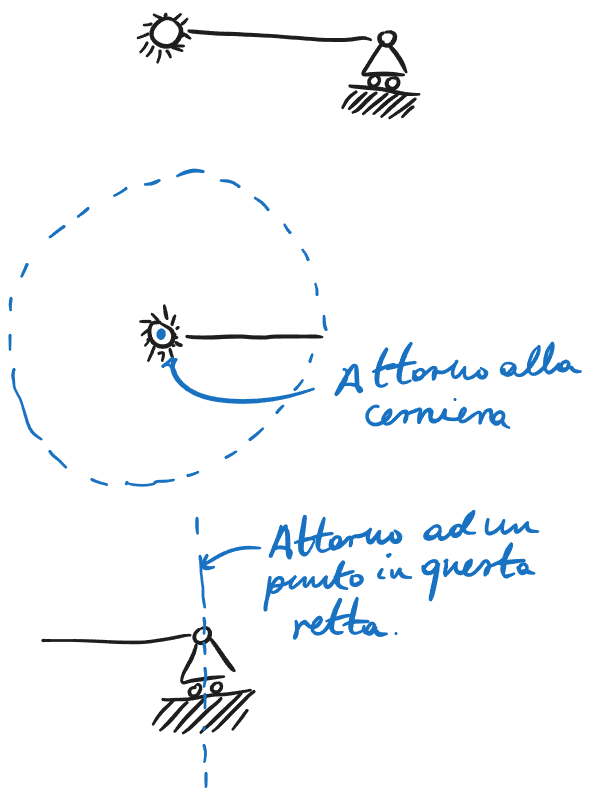 Attorno alla
cerniera
Attorno ad un
punto in questa
retta.